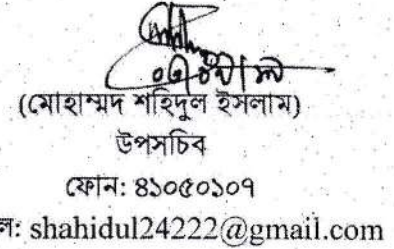 (মোহাম্মদ শহিদুল ইসলাম)
উপসচিব
ফোন: ৪১০৫০১০৭
ল: shahidul24222@gmail.com